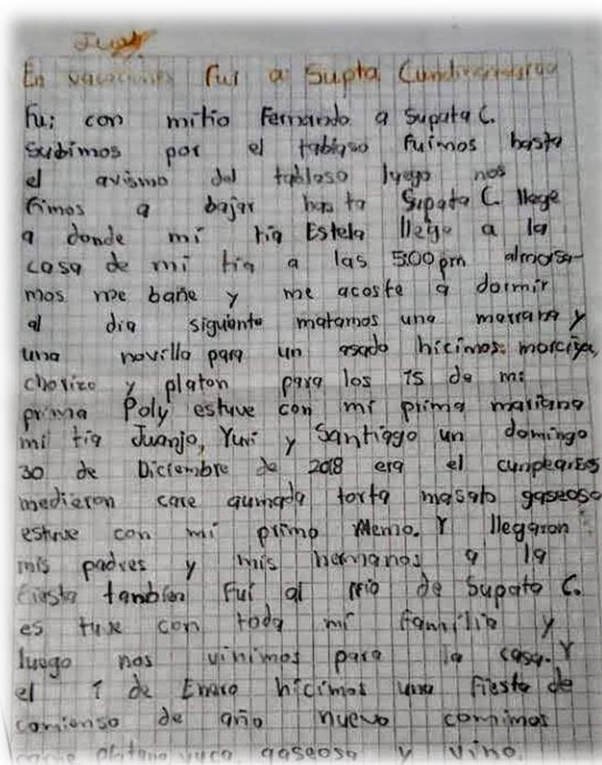 Juan
En vacaciones fui a Supta Cundinamarca
Fui con mi tio Fernando a Supata C.
Subimos por el tablaso Fuimos hasta
el avismo del tablaso lyego nos
fimos a bajar hasta Supata C. llege
a donde mi tia Estela llege a la
casa de mi tia a las 5:00 pm almorsa-
mos me bañe y me acoste a dormir
al dia siguiente matamos una marrana y
una novilla para un asado hicimos morciya,
chorizo y platon para los 15 de mi
prima Poly estuve con mi prima mariana
mi tia Juanjo, Yuri y Santiago un domingo
30 de Diciembre de 2018 era el cunpeaños
medieron care aumada torta masato gaseosa
estuve con mi primo Memo. Y llegaron
mis padres y mis hermanos a la
fiesta tanbien Fui al rrio de Supata C.
es tuve con toda mi familia y
luego nos vinimos para la casa. Y
el 1 de Enero hicimos una fiesta de
comienso de año nuevo comimos
carne platano yuca gaseosa y vino.